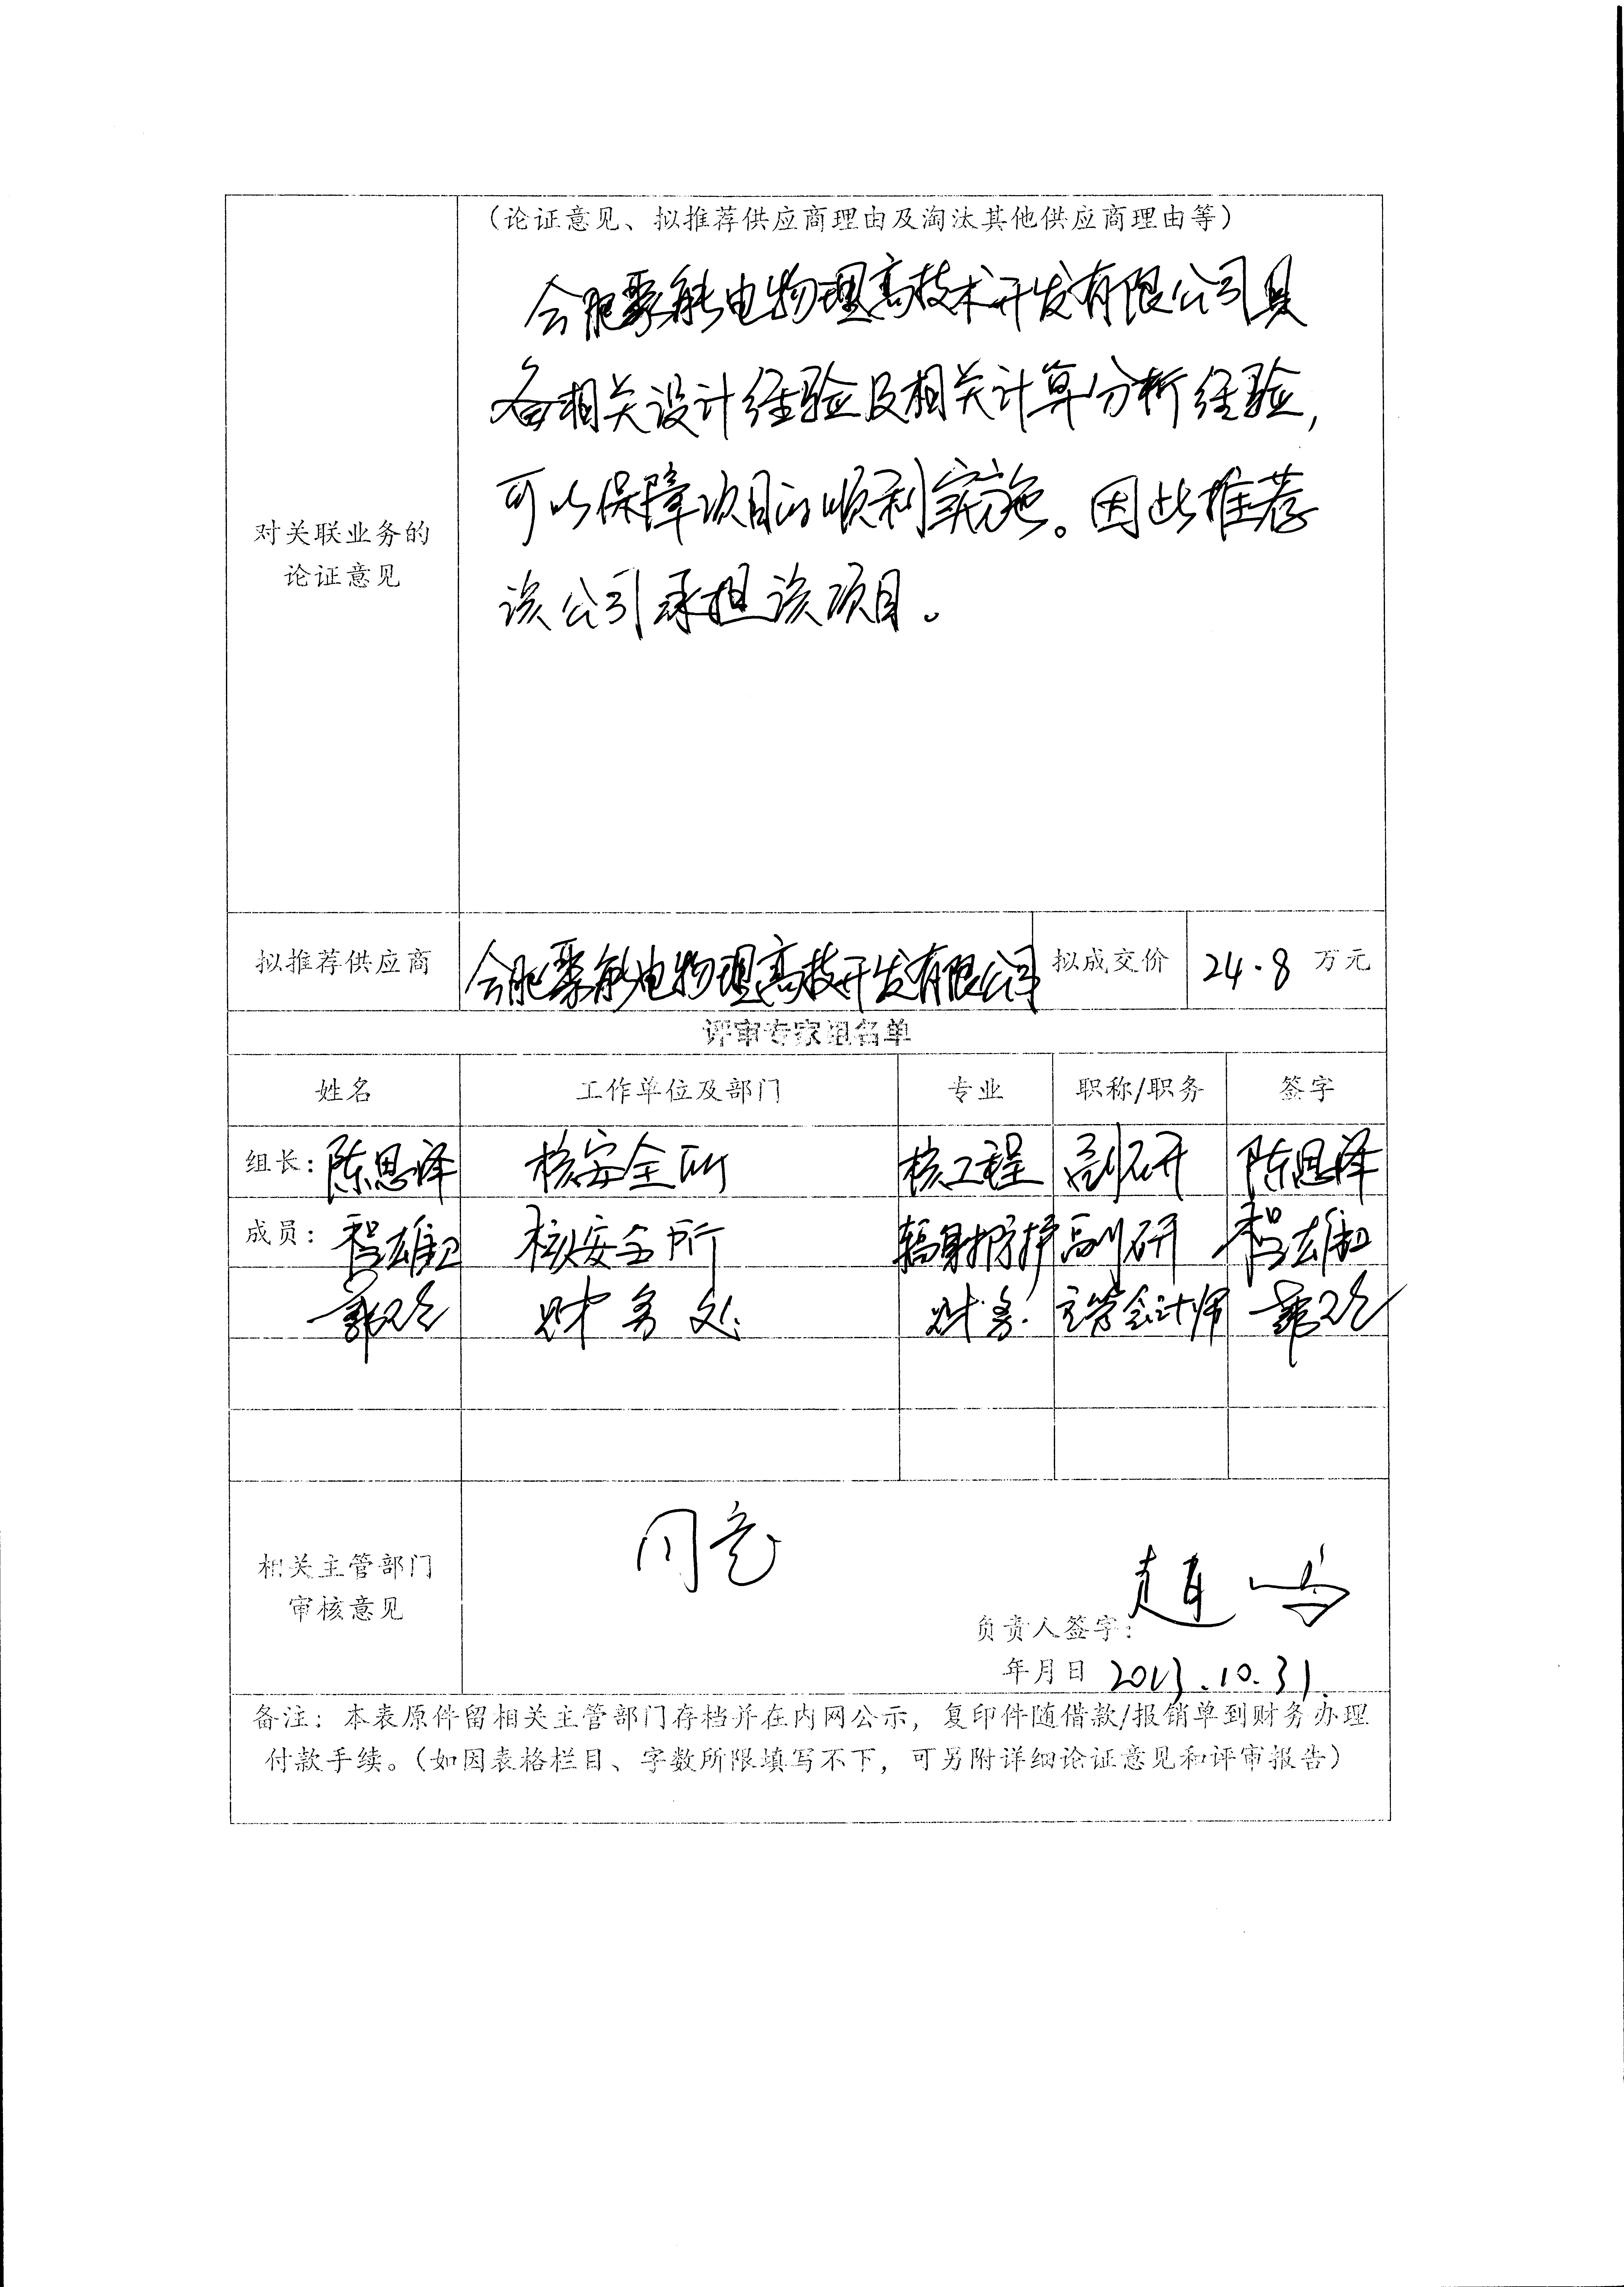 （论证意见、拟推荐供应商理由及淘汰其他供应商理由等）
合肥聚能电物理高技术开发有限公司具
备相关设计经验及相关计算分析经验，
可以保障项目的顺利实施。因此推荐
该公司承担该项目。
对关联业务的
论证意见
拟推荐供应商 合肥聚能电物理高技开发有限公司 拟成交价 24.8 万元
评审专家组名单
姓名 工作单位及部门 专业 职称/职务 签字
组长：陈思泽 核安全所 核工程 副研 陈思泽
成员：程雄卫 核安全所 辐射防护 副研 程雄卫
财务处 财务 主管会计师
同意
相关主管部门
审核意见
负责人签字：
年月日 2013.10.31
备注：本表原件留相关主管部门存档并在内网公示，复印件随借款/报销单到财务办理
付款手续。（如因表格栏目、字数所限填写不下，可另附详细论证意见和评审报告）